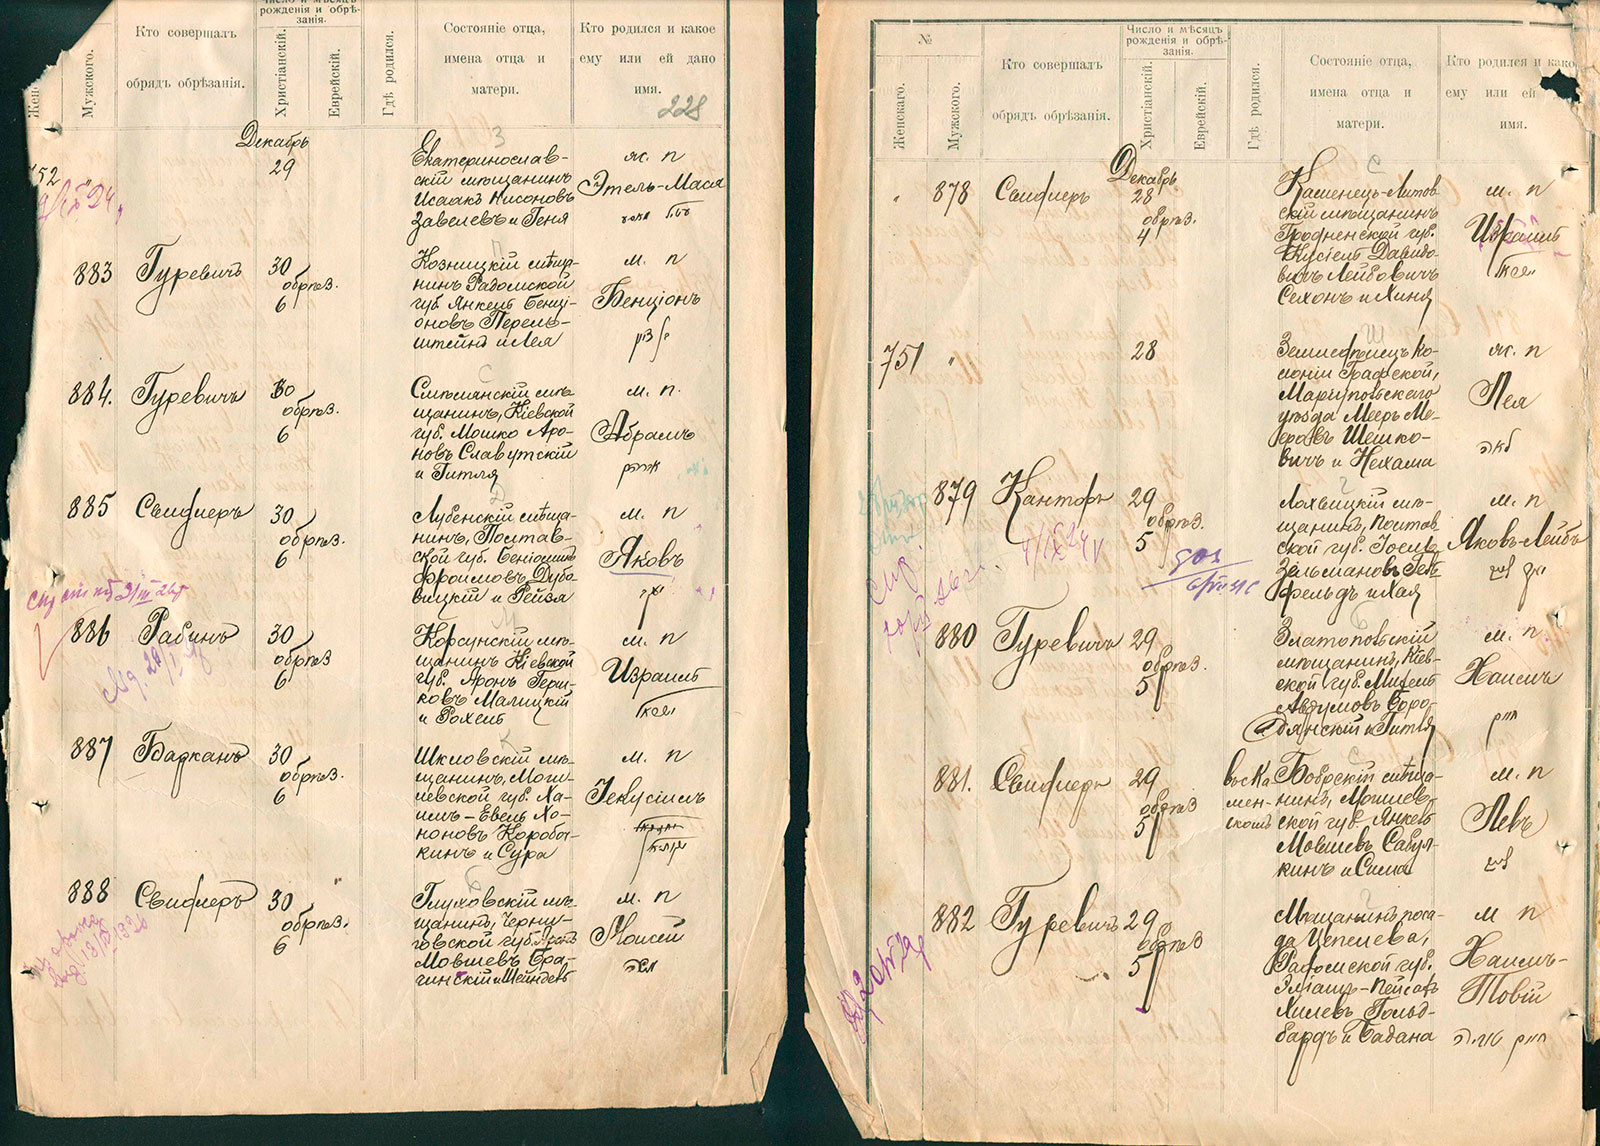 Женс
Мужского.
Кто совершалъ
обрядъ обрѣзанія.
Число и мѣсяцъ
рожденія и обрѣ-
занія.
Христіанскій.
Еврейскій.
Гдѣ родился.
Состояніе отца,
имена отца и
матери.
Кто родился и какое
ему или ей дано
имя.
228
752
"
Декабрь
29
Екатеринослав-
скій мѣщанинъ
Исаакъ Нисоновъ
Завелевъ и Геня
ж. п
Этель-Мася
883
Гуревичъ
30
обрѣз.
6
Козницкій мѣща-
нинъ Радомской
губ. Янкель Бенці-
оновъ Перель-
штейнъ и Лея
м. п
Бенціонъ
884.
Гуревичъ
30
обрѣз.
6
Смѣлянскій мѣ-
щанинъ, Кіевской
губ. Мошко Аро-
новъ Славутскій
и Гитля
м. п.
Абрамъ
885
Свифлеръ
30
обрѣз.
6
Лубенскій мѣща-
нинъ, Полтав-
ской губ. Беніоминъ
Фроимовъ Дубо-
вицкій и Рейза
м. п
Яковъ
886
Рабинъ
30
обрѣз
6
Корсунскій мѣ-
щанинъ Кіевской
губ. Аронъ Герш-
ковъ Малицкій
и Рохель
м. п
Израиль
887
Барканъ
30
обрѣз.
6
Шкловскій мѣ-
щанинъ, Моги-
левской губ. Ха-
имъ-Евель Хо-
ноновъ Коробоч-
кинъ и Сура
м. п
Іекусіилъ
888
Свифлеръ
30
обрѣз.
6
Глуховскій мѣ-
щанинъ, Черни-
говской губ.
Мовшевъ Бра-
гинскій и Шейндель
м. п
Моисей
משה
№
Женскаго.
Мужского.
Кто совершалъ
обрядъ обрѣзанія.
Число и мѣсяцъ
рожденія и обрѣ-
занія.
Христіанскій.
Еврейскій.
Гдѣ родился.
Состояніе отца,
имена отца и
матери.
Кто родился и како
ему или ей
имя.
"
878
Свифлеръ
Декабрь
28
обрѣз.
4
Каменецъ-Литов
скій мѣщанинъ
Гродненской губ.
Кусіель Давидо-
вичъ Лейбовичъ
Сехонъ и Хиня
м. п
Израиль
751
"
28
Землеѣлецъ ко-
лоніи Графской,
Маріупольскаго
уѣзда Меръ Ме-
еровъ Шешко-
вичъ и Нехама
ж. п
Лея
לאה
879
Канторъ
29
обрѣз.
5
Лохвицкій мѣ-
щанинъ, Полтав
ской губ. Іосель
Зельмановъ Гель
фельдъ и Хая
м. п
Яковъ-Лейбъ
880
Гуревичъ
29
обрѣз.
5
Златопольскій
мѣщанинъ, Кіев-
ской губ. Михель
Авдумовъ Боро-
дянскій и Гитля
м. п.
Хаимъ
חיים
881.
Свифлеръ
29
обрѣз
5
въ с Ка
мен-
скомъ
Бобрскій мѣща-
нинъ, Могилев-
ской губ. Янкель
Мовшевъ Савул-
кинъ и Сима
м. п
Левъ
882
Гуревичъ
29
обрѣз
5
Мѣщанинъ поса-
да Цепелева,
Радомской губ.
Эліашъ-Пейсахъ
Хилевъ Гольд-
бардъ и Бадана
м п
Хаимъ-
Товій
חיים טוביה